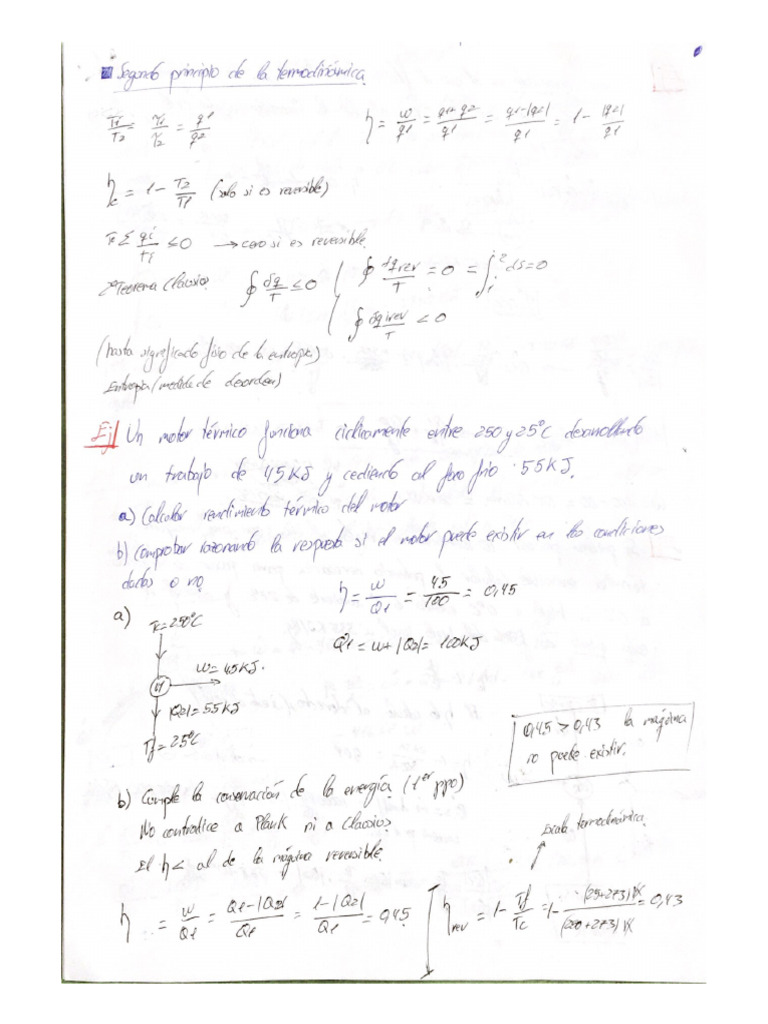 Segundo principio de la termodinámica
T1/T2 = τ1/τ2 = q1/q2
η = w/q1 = q1+q2/q1 = q1-|q2|/q1 = 1 - |q2|/q1
ηc = 1 - T2/T1 (solo si es reversible)
Σ qi/Ti ≤ 0 → cero si es reversible.
Teorema Classius
∮ δq/T ≤ 0
∮ dqrev/T = 0 = ∫ ds = 0
∮ δqirev/T < 0
(hasta significado fisio de la entropia)
Entropia (medida de desorden)
Ej/ Un motor térmico funciona ciclicamente entre 250 y 25°C desarrollando
un trabajo de 45KJ y cediendo al foco frio 55KJ.
a) Calcular rendimiento térmico del motor
b) Comprobar razonando la respuesta si el motor puede existir en las condiciones
dadas o no
η = w/Q1 = 45/100 = 0,45
a)
Tc = 250°C
Q1 = w + |Q2| = 100KJ
w = 45KJ.
|Q2| = 55KJ
Tf = 25°C
0,45 > 0,43 la máquina
no puede existir.
b) Cumple la conservación de la energía (1er ppo)
No contradice a Plank ni a Classius
El η < al de la máquina reversible.
Escala termodinámica
η = w/Q1 = Q1-|Q2|/Q1 = 1-|Q2|/Q1 = 0,45
ηrev = 1 - Tf/Tc = 1 - (25+273)K/(250+273)K = 0,43